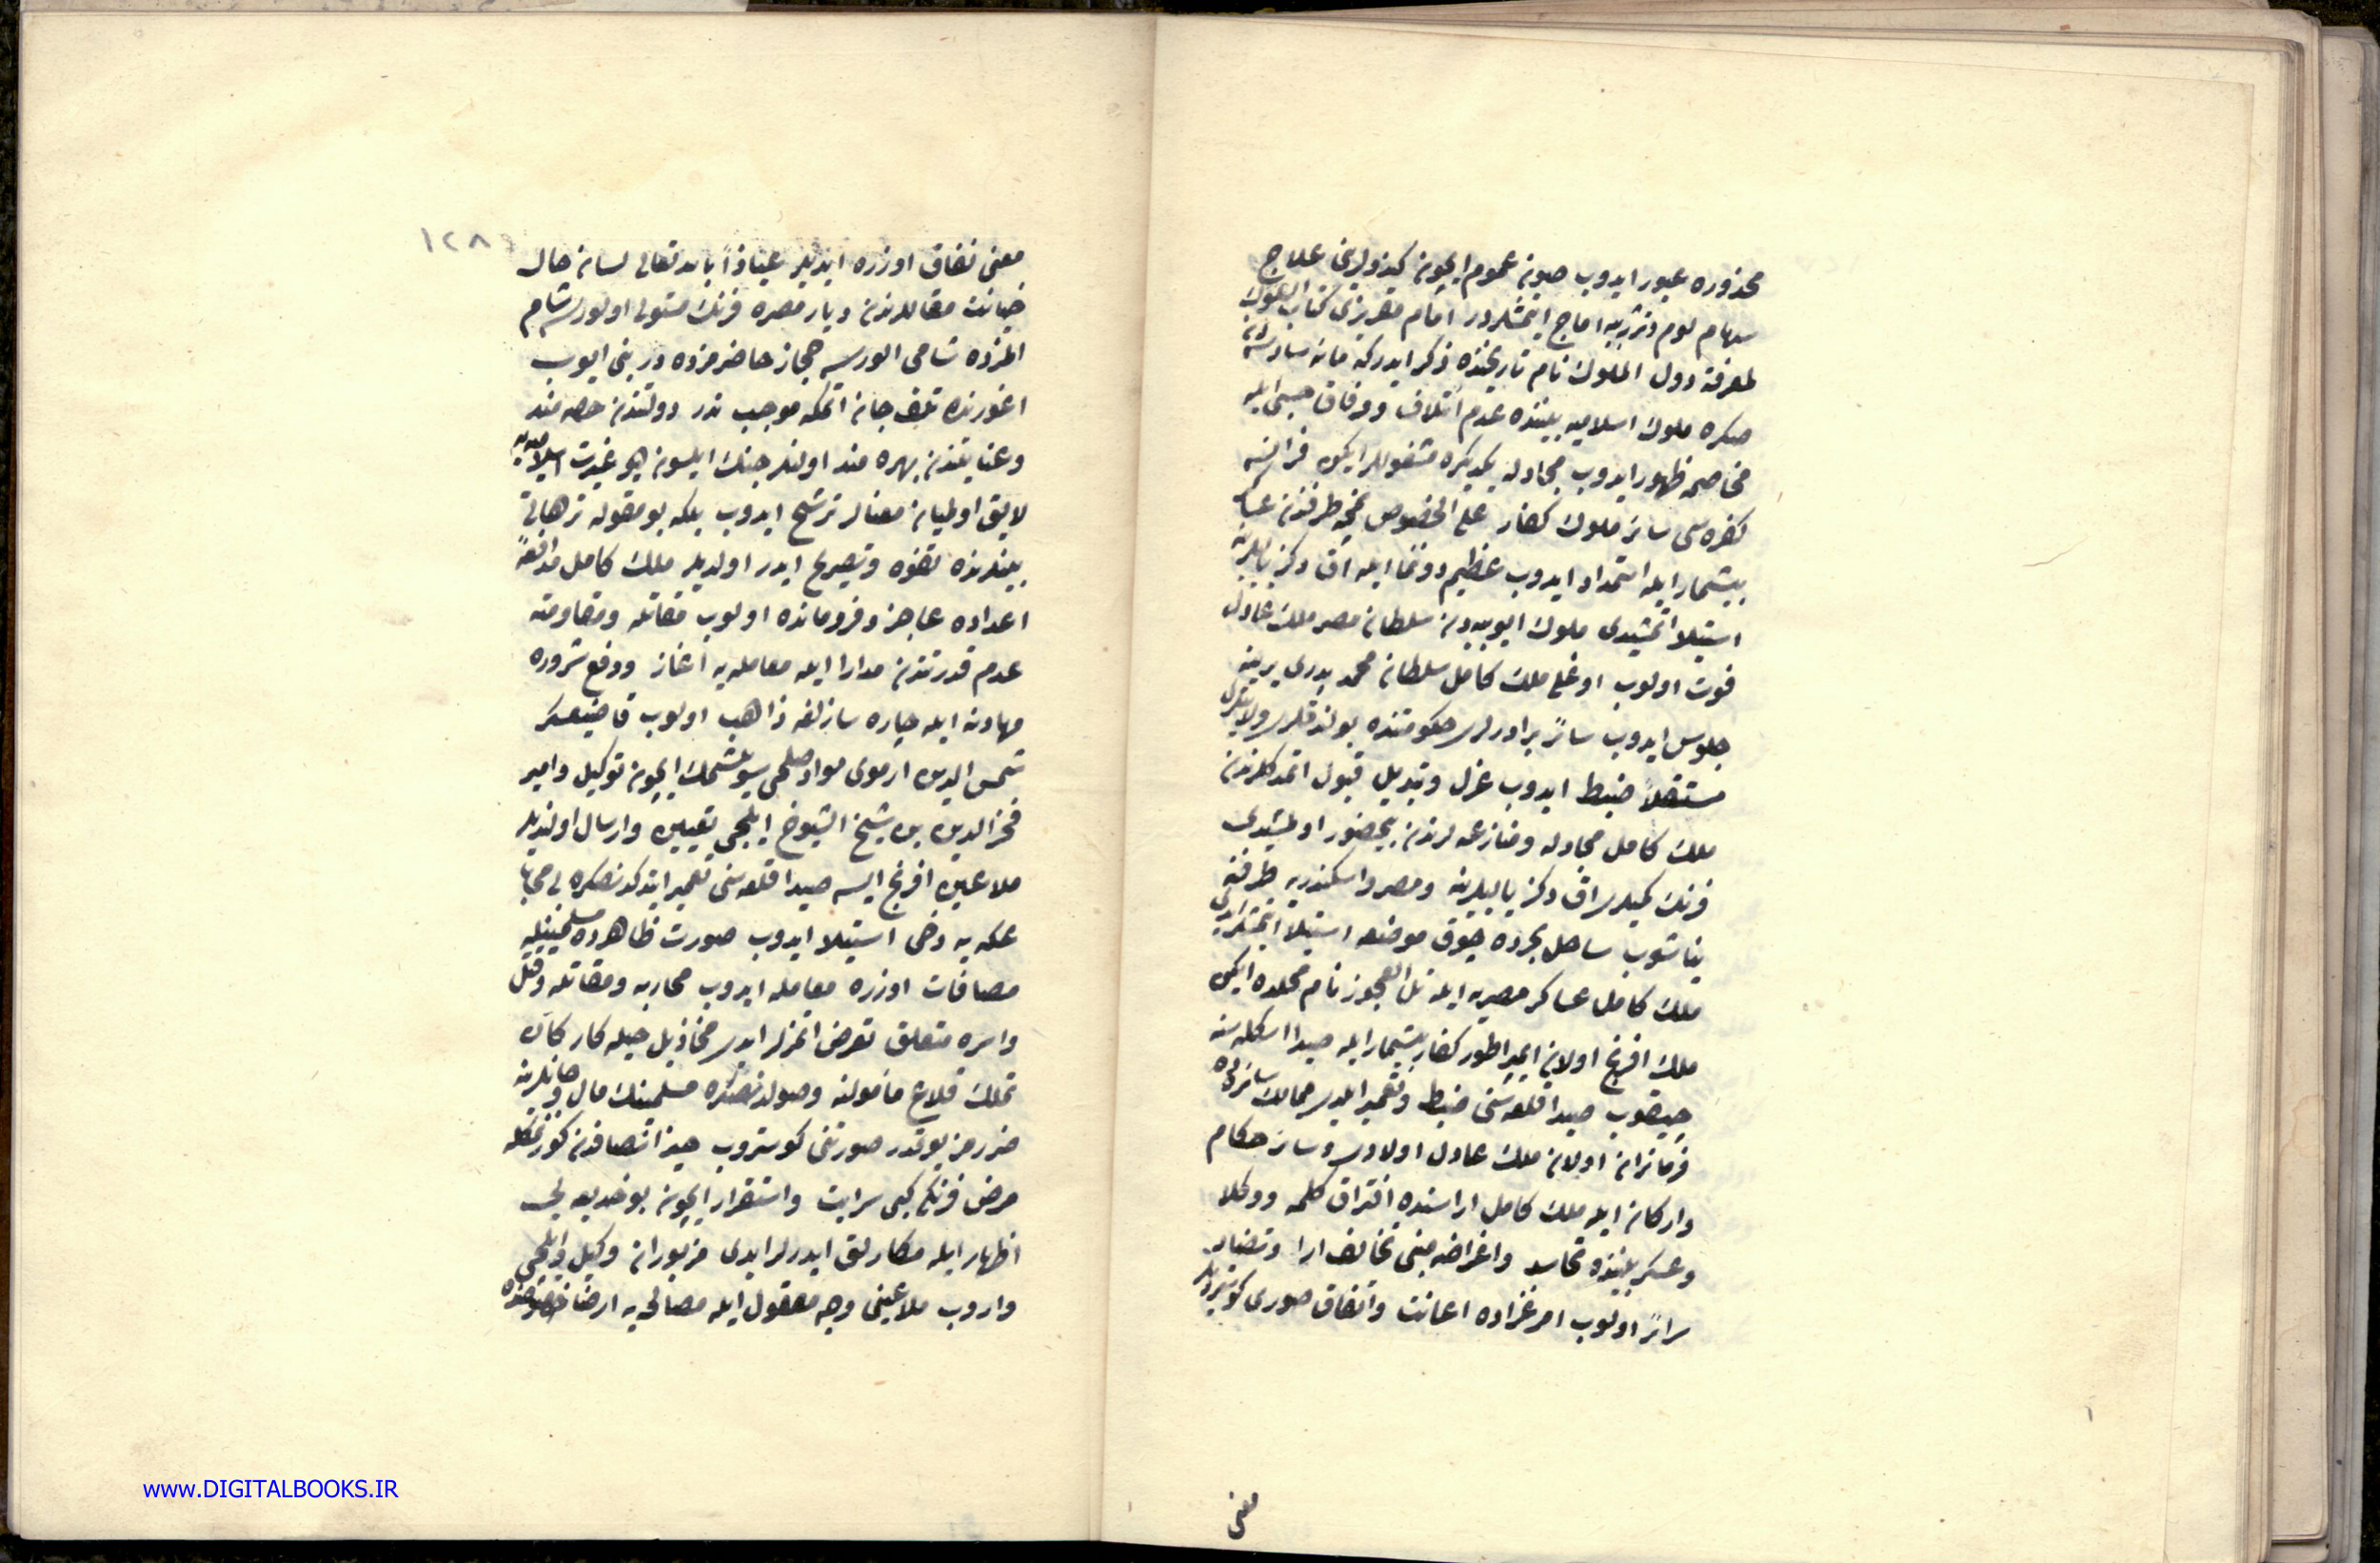 محذوره عبور ايدوب صون عموم ايچون كيزولرينى علاج
سهام لوم و تثريبه اماج ايتمشلردر امام مقريزى كتاب السلوك
لمعرفة دول الملوك نام تاريخنده ذكر ايدركه
صكره ملوك اسلاميه بيننده عدم ائتلاف و وفاق حسبى ايله
مخاصمه ظهور ايدوب مجادله يكديكره مشغوللر ايكن فرانسه
كفره سى سائر ملوك كفار على الخصوص نمچه طرفندن عساكر
بيشمار ايله استمداد ايدوب عظيم دوننما ايله اق دكز ياليلرينه
استيلا اتمشيدى ملوك ايوبيه دن سلطان مصر ملك عادل
فوت اولوب اوغلى ملك كامل سلطان محمد پدرى يرينه
جلوس ايدوب سائر برادرلرى حكومتنده بولندقلرى ولايتلرى
مستقلا ضبط ايدوب عزل و تبديل قبول اتمدكلرندن
ملك كامل مجادله و منازعه لرندن بيحضور اولمشيدى
فرنك كميلرى اق دكز ياليلرينه و مصر و اسكندريه طرفنه
يناشوب ساحل بحرده چوق موضعه استيلا اتمشلر ايدى
ملك كامل عساكر مصريه ايله تل العجوز نام محلده ايكن
ملك افرنج اولان ايمپراطور كفار بيشمار ايله صيدا اسكله سنه
چيقوب صيدا قلعه سنى ضبط و تعمير ايلدى ممالك سائره ده
فرمانران اولان ملك عادل اولادى و سائر حكام
و اركان ايله ملك كامل اراسنده افتراق كلمه و وكلا
و عسكر بيننده تحاسد و اغراضه مبنى تخالف ارا و تضاد
سرائر اولوب امر غزاده اعانت و اتفاق صورى كوستررديلر
معنى
١٢٨
معنى نفاق اوزره ايديلر عياذا بالله تعالى لسان حال
خيانت مقاللرندن ديار مصره فرنك مستولى اولورسه شام
المزده شامى الورسه حجاز حاضرمزده در بنى ايوب
اغورنده تلف جان اتمكه موجب ندر دولتندن حصه مند
و عنايتندن بهره مند اولنلر جنك ايلسون ديو غيرت اسلاميه يه
لايق اولميان معنالر ترشح ايدوب بلكه بو مقوله ترهاتى
بينلرنده تفوه و تصريح ايدر اولديلر ملك كامل مدافعۀ
اعداده عاجز و فرومانده اولوب مقاتله و مقاومته
عدم قدرتندن مدارا ايله معامله يه آغاز و دفع شروره
مهادنه ايله چاره سازلغه ذاهب اولوب قاضيعسكر
شمس الدين ارموى مواد صلحى سويلشمك ايچون توكيل و امير
فخر الدين بن شيخ الشيوخ ايلچى تعيين و ارسال اولنديلر
ملاعين افرنج ايسه صيدا قلعه سنى تعمير ايتدكدنصكره بى محابا
عكه يه دخى استيلا ايدوب صورت ظاهرده مسلمينله
مصافات اوزره معامله ايدوب محاربه و مقاتله و قتل
و اسره متعلق تعرض اتمزلر ايدى مخاذيل حيله كار كأن
تملك قلاع مأموله وصولدنصكره مسلمينك مال و جانلرينه
ضررمز يوقدر صورتنى كوستروب حيز انصافدن كورنمكله
مرض فرنكى كبى سرايت و استقرار ايچون بو خديعه يى
اظهار ايله مكارلق ايدرلر ايدى مزبوران وكيل و ايلچى
واروب ملاعينى وجه معقول ايله مصالحه يه ارضا خصوصنده
www.DIGITALBOOKS.IR